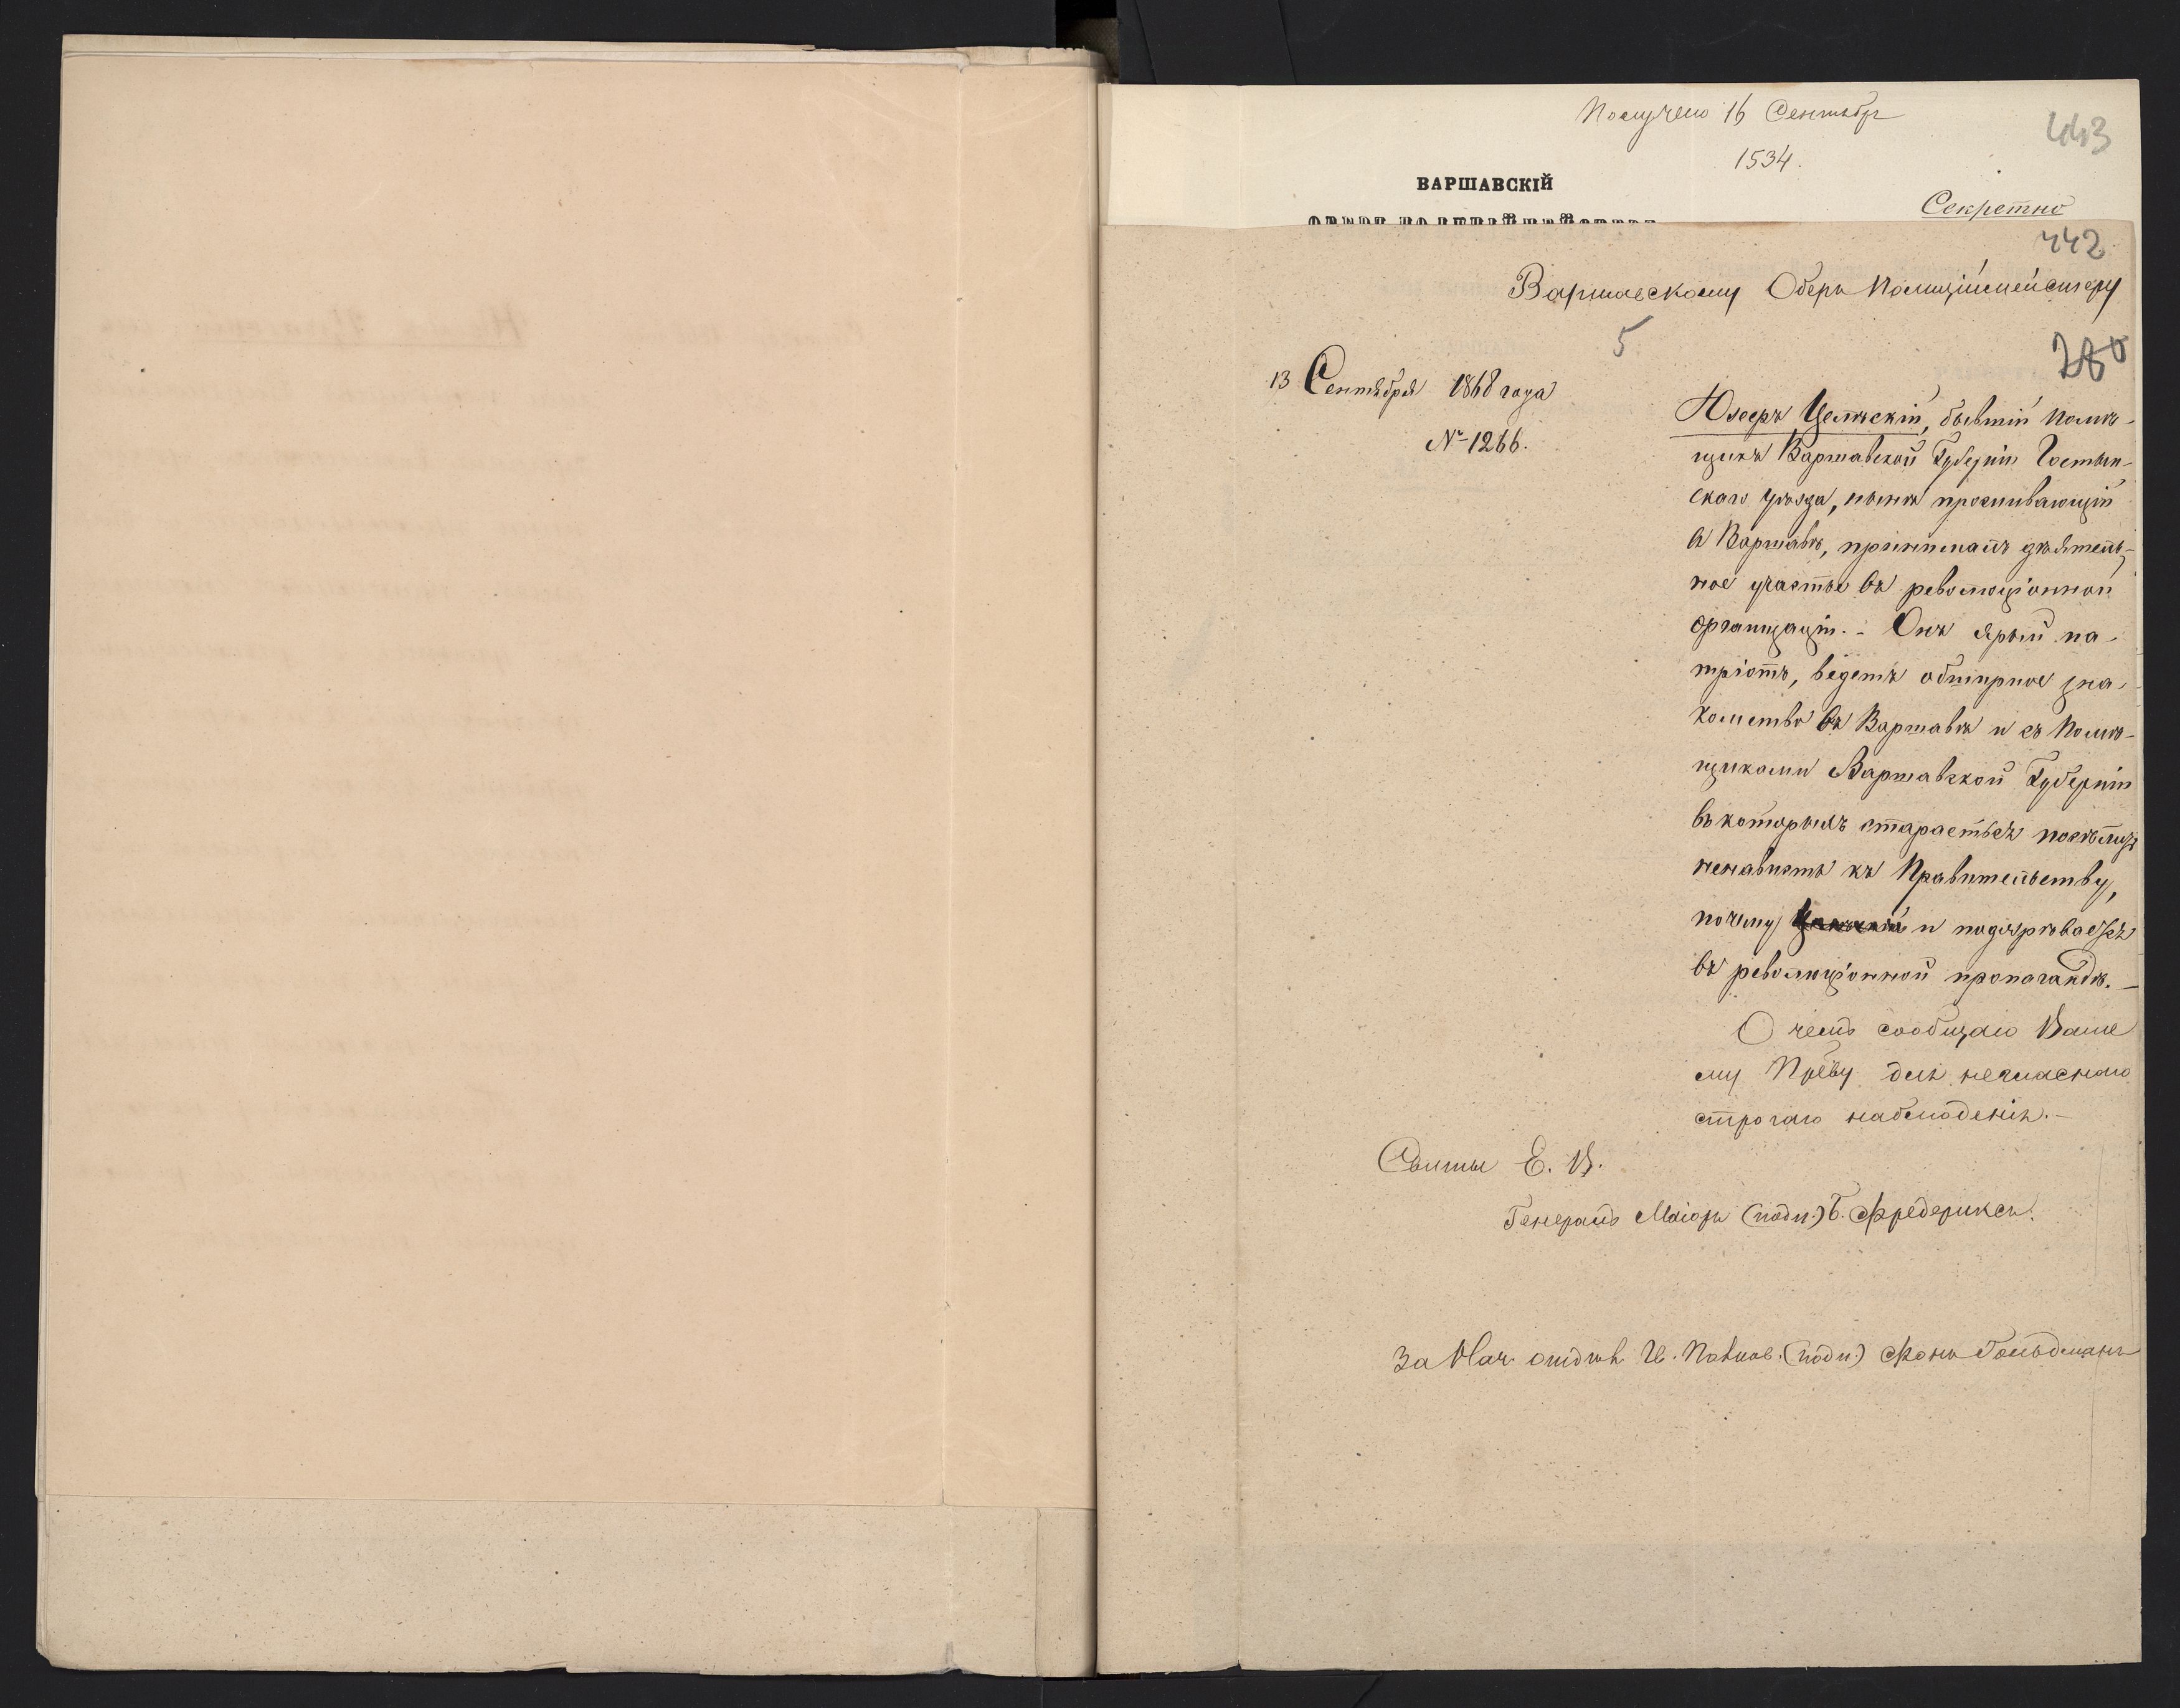 Получено 16 Сентябр
443
1534.
ВАРШАВСКІЙ
ОБЕРЪ ПОЛИЦІЙМЕЙСТЕРЪ
Секретно
442
Варшавскому Оберъ Полиціймейстеру
5
280
13 Сентября 1868 года
№ 1266.
Юзефъ Целѣскій, бывшій помѣ-
щикъ Варшавской Губерніи Гостын-
скаго уѣзда, нынѣ проживающій
въ Варшавѣ, принималъ дѣятель-
ное участье въ революціонной
организаціи. - Онъ ярый па-
тріотъ, ведетъ обширное зна-
комство въ Варшавѣ и съ помѣ-
щиками Варшавской Губерніи
въ которыхъ старается поселить
ненависть къ Правительству,
почему и подозрѣвается
въ революціонной пропагандѣ. -
О чемъ сообщаю Ваше
му Пр-ву для негласнаго
строгаго наблюденія. -
Свиты Е. В.
Генералъ Маіоръ (подп.) Б. Фредериксъ.
За Нач. отдѣл. Полков. (подп.) Фонъ Гольдманъ